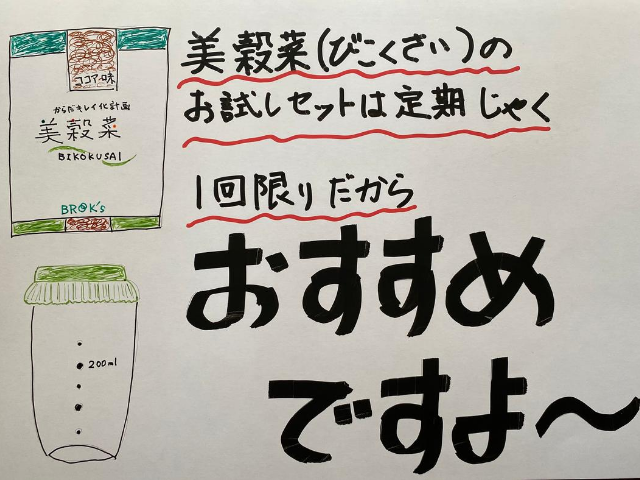 美穀菜(びこくさい)の
お試しセットは定期じゃく
1回限りだから
おすすめ
ですよ〜
ココアー味
からだキレイ化計画
美穀菜
BIKOKUSAI
BROOK's
200ml